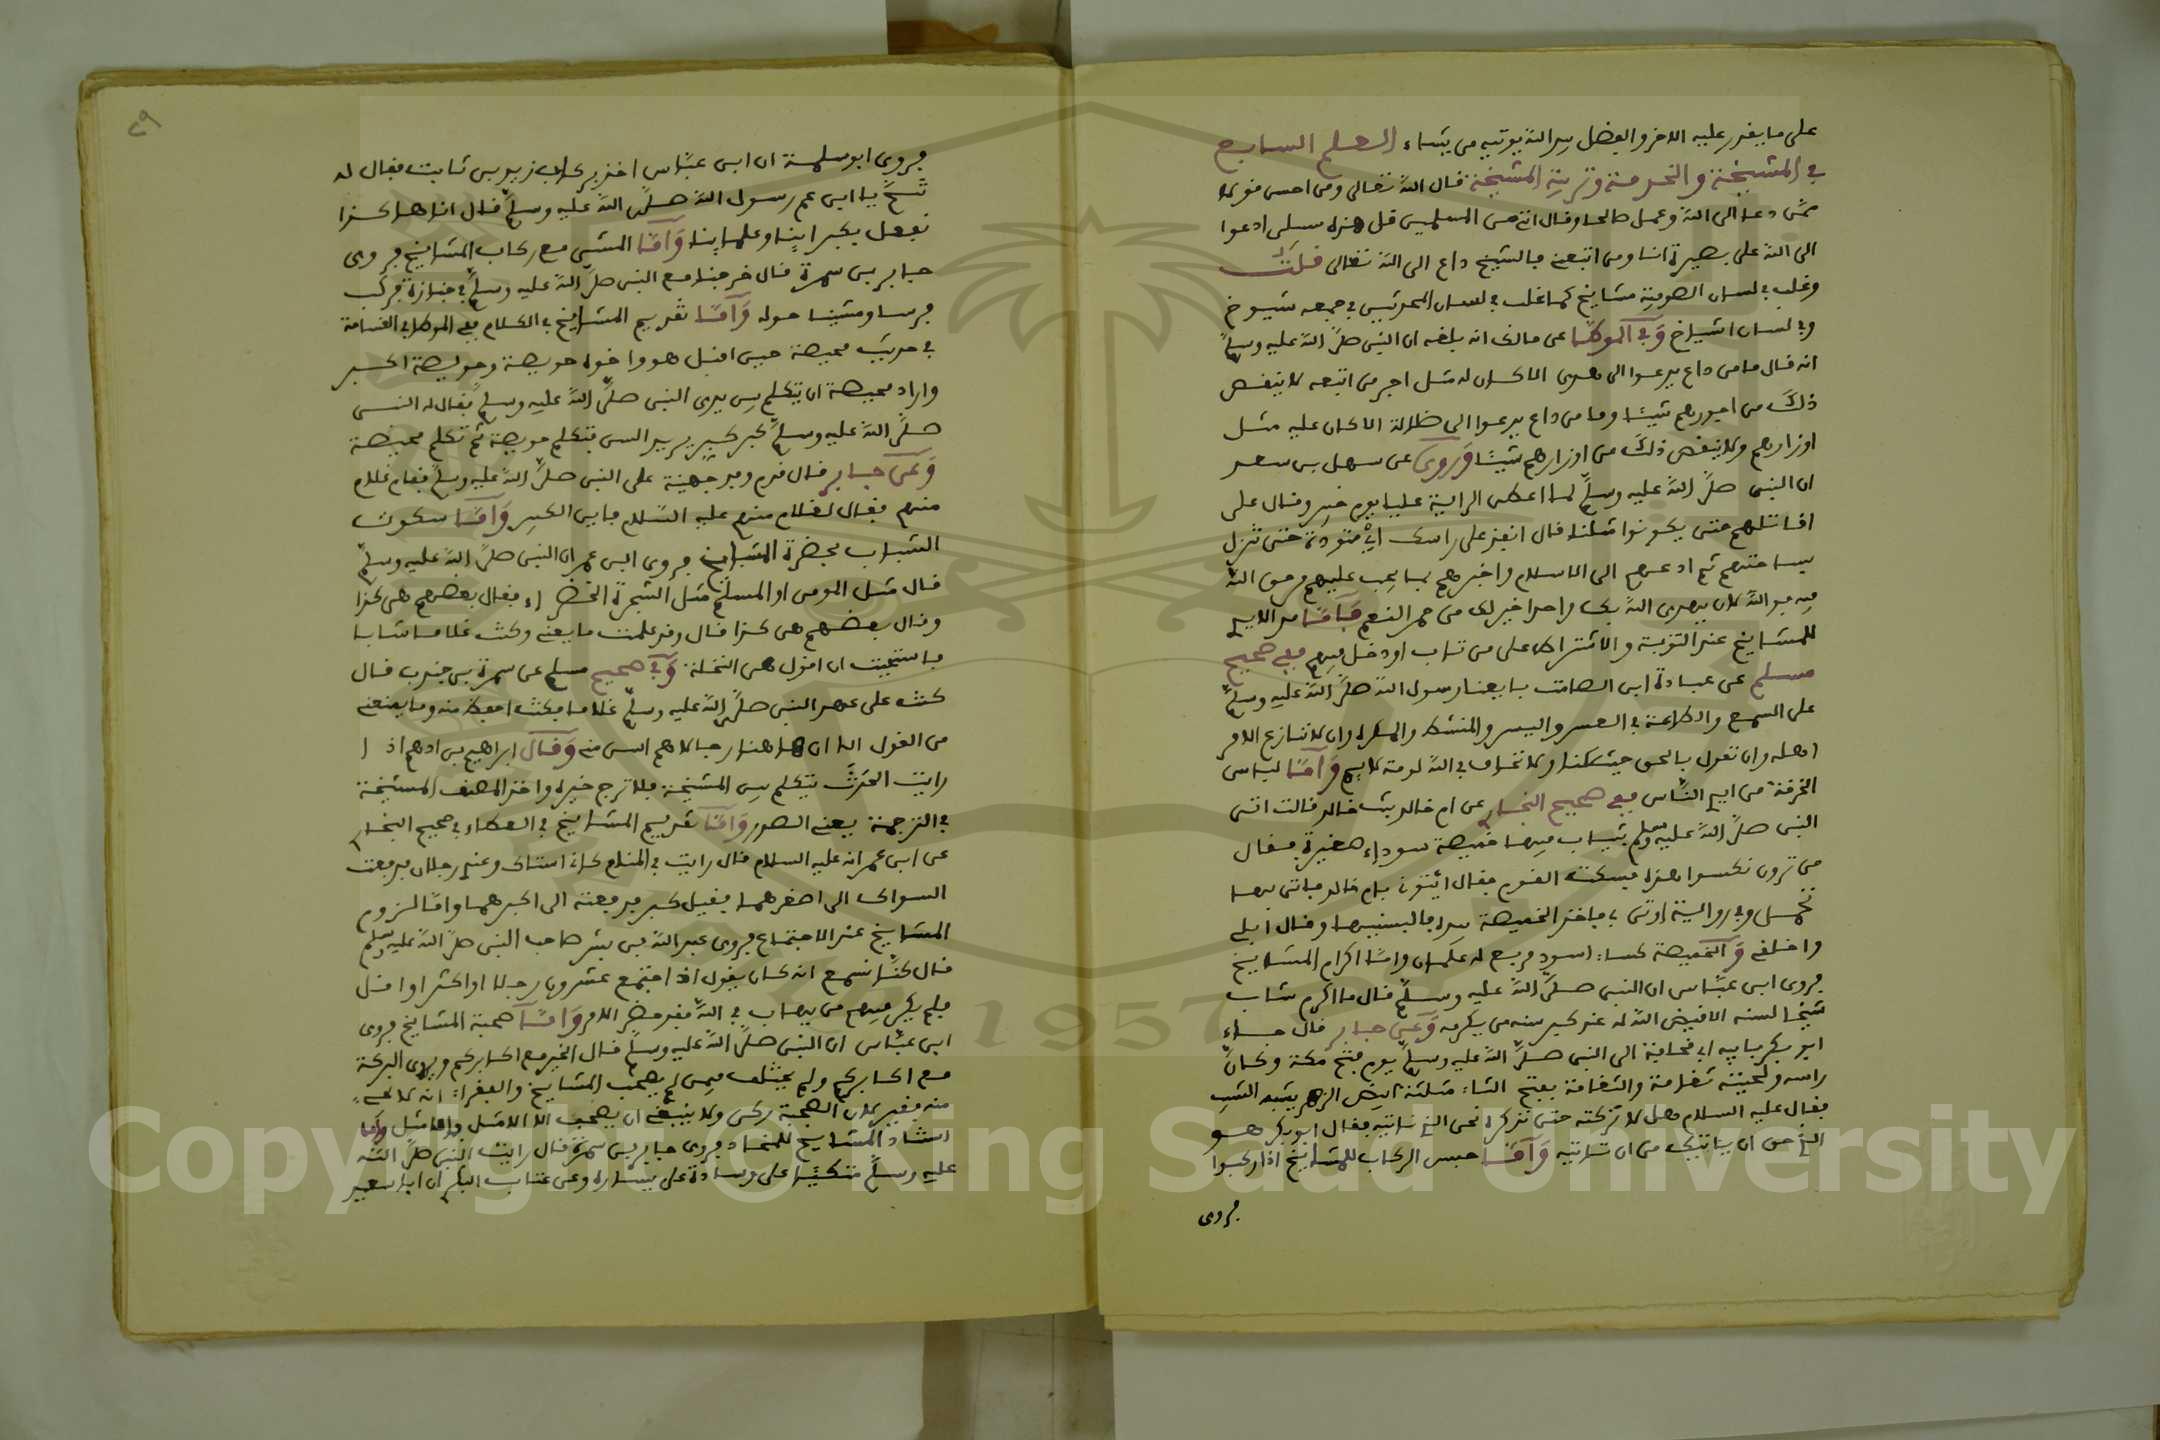 على ما يقدر عليه الاخر والفضل بيد الله يوتيه من يشاء العلم السابع
في المشيخة والخدمة وتربية المشيخة قال الله تعالى ومن احسن قولا
ممن دعا الى الله وعمل صالحا وقال انني من المسلمين قل هذه سبيلي ادعوا
الى الله على بصيرة انا ومن اتبعني فالشيخ داع الى الله تعالى قلت
وغلب في لسان الصوفية مشايخ كما غلب في لسان المحدثين في جمعه شيوخ
وفي لسان اشياخ وفي الموطا عن مالك انه بلغه ان النبي صلى الله عليه وسلم
انه قال ما من داع يدعوا الى هدى الا كان له مثل اجر من اتبعه لا ينقص
ذلك من اجورهم شيئا وما من داع يدعوا الى ضلالة الا كان عليه مثل
اوزارهم ولا ينقص ذلك من اوزارهم شيئا وروى عن سهل بن سعد
ان النبي صلى الله عليه وسلم لما اعطى الراية عليا يوم خيبر وقال علي
اقاتلهم حتى يكونوا مثلنا قال انفذ على راسك اي متودة حتى تنزل
بساحتهم ثم ادعهم الى الاسلام واخبرهم بما يجب عليهم من حق الله
فيه فو الله لان يهدي الله بك واحدا خير لك من حمر النعم فاما مد الايد
للمشايخ عند التوبة والاشتراك على من تاب او دخل فيهم ففي صحيح
مسلم عن عبادة ابن الصامت بايعنا رسول الله صلى الله عليه وسلم
على السمع والطاعة في العسر واليسر والمنشط والمكره وان لا ننازع الامر
اهله وان نقول بالحق حيث كنا ولا نخاف في الله لومة لايم واما لباس
الخرقة من ايد الناس ففي صحيح البخار عن ام خالد بنت خالد قالت اتى
النبي صلى الله عليه وسلم بثياب فيها خميصة سوداء صغيرة فقال
من ترون نكسوا هذه فسكت القوم فقال ائتوني بام خالد فاتى بها
تحمل وفي رواية اوتى بي فاخذ الخميصة بيده فالبسنيها وقال ابلي
واخلقي والخميصة كساء اسود مربع له علمان واما اكرام المشايخ
فروى ابن عباس ان النبي صلى الله عليه وسلم قال ما اكرم شاب
شيخا لسنه الا قيض الله له عند كبر سنه من يكرمه وعن جابر قال جاء
ابو بكر بابيه ابي قحافة الى النبي صلى الله عليه وسلم يوم فتح مكة وكان
راسه ولحيته ثغامة والثغامة بفتح الثاء مثلثة ابيض الزهر يشبه الشيب
فقال عليه السلام هل لا تركته حتى تذكره نحن الذي ناتيه فقال ابو بكر هو
الذي حق ان ياتيك من ان تاتيه واما حبس الركاب للمشايخ اذا ركبوا
فروى
٢٩
فروى ابو سلمة ان ابن عباس اخذ بركاب زيد بن ثابت فقال له
تنح يا ابن عم رسول الله صلى الله عليه وسلم قال انا هاكذا
نفعل بكبراينا وعلماينا واما المشي مع ركاب المشايخ فروى
جابر بن سمرة قال خرجنا مع النبي صلى الله عليه وسلم في جنازة فركب
فرسا ومشينا حوله واما تقديم المشايخ في الكلام ففي الموطا في القسامة
في حديث محيصة حين اقبل هو واخوه حويصة وحويصة اكبر
واراد محيصة ان يتكلم بين يدى النبي صلى الله عليه وسلم فقال له النبي
صلى الله عليه وسلم كبر كبر يريد السن فتكلم حويصة ثم تكلم محيصة
وعن جابر قال قدم وفد جهينة على النبي صلى الله عليه وسلم فقام غلام
منهم فقال لغلام منهم عليه السلام فاين الكبير واما سكوت
الشباب بحضرة المشايخ فروى ابن عمر ان النبي صلى الله عليه وسلم
قال مثل المومن او المسلم مثل الشجرة الخضراء فقال بعضهم هي كذا
وقال بعضهم هي كذا قال وقد علمت ما يعني وكنت غلاما شابا
فاستحيت ان اقول هي النخلة وفي صحيح مسلم عن سمرة بن جندب قال
كنت على عهد النبي صلى الله عليه وسلم غلاما فكنت احفظ منه وما يمنعني
من القول الا ان هاهنا رجالا هم اسن مني وقال ابراهيم بن ادهم اذا
رايت الحدث يتكلم بين المشيخة فلا ترج خيره واخذ المصنف المشيخة
في الترجمة يعني الصدور واما تقديم المشايخ في العطاء في صحيح البخار
عن ابن عمر انه عليه السلام قال رايت في المنام كاني استاك وعندي رجلان فدفعت
السواك الى اصغرهما فقيل كبر فدفعته الى اكبرهما واما لزوم
المشايخ عند الاجتماع فروى عبد الله بن بشر صاحب النبي صلى الله عليه وسلم
قال كنا نسمع انه كان يقول اذا اجتمع عشرون رجلا او اكثر او اقل
فلم يكن فيهم من يهاب في الله فقد حضر الامر واما صحبة المشايخ فروى
ابن عباس ان النبي صلى الله عليه وسلم قال الخير مع اكابركم ويروى البركة
مع اكابركم ولم يختلف فيمن لم يصحب المشايخ والفقراء انه لا يجيء
منه فقير لان الصحبة ركن ولا ينبغي ان يصحب الا الامثل فالامثل واما
استناد المشايخ للمخاد فروى جابر بن سمرة قال رايت النبي صلى الله
عليه وسلم متكئا على وسادة على يساره وعن عتاب البكر ان ابا سعيد
Copyright © King Saud University
1957